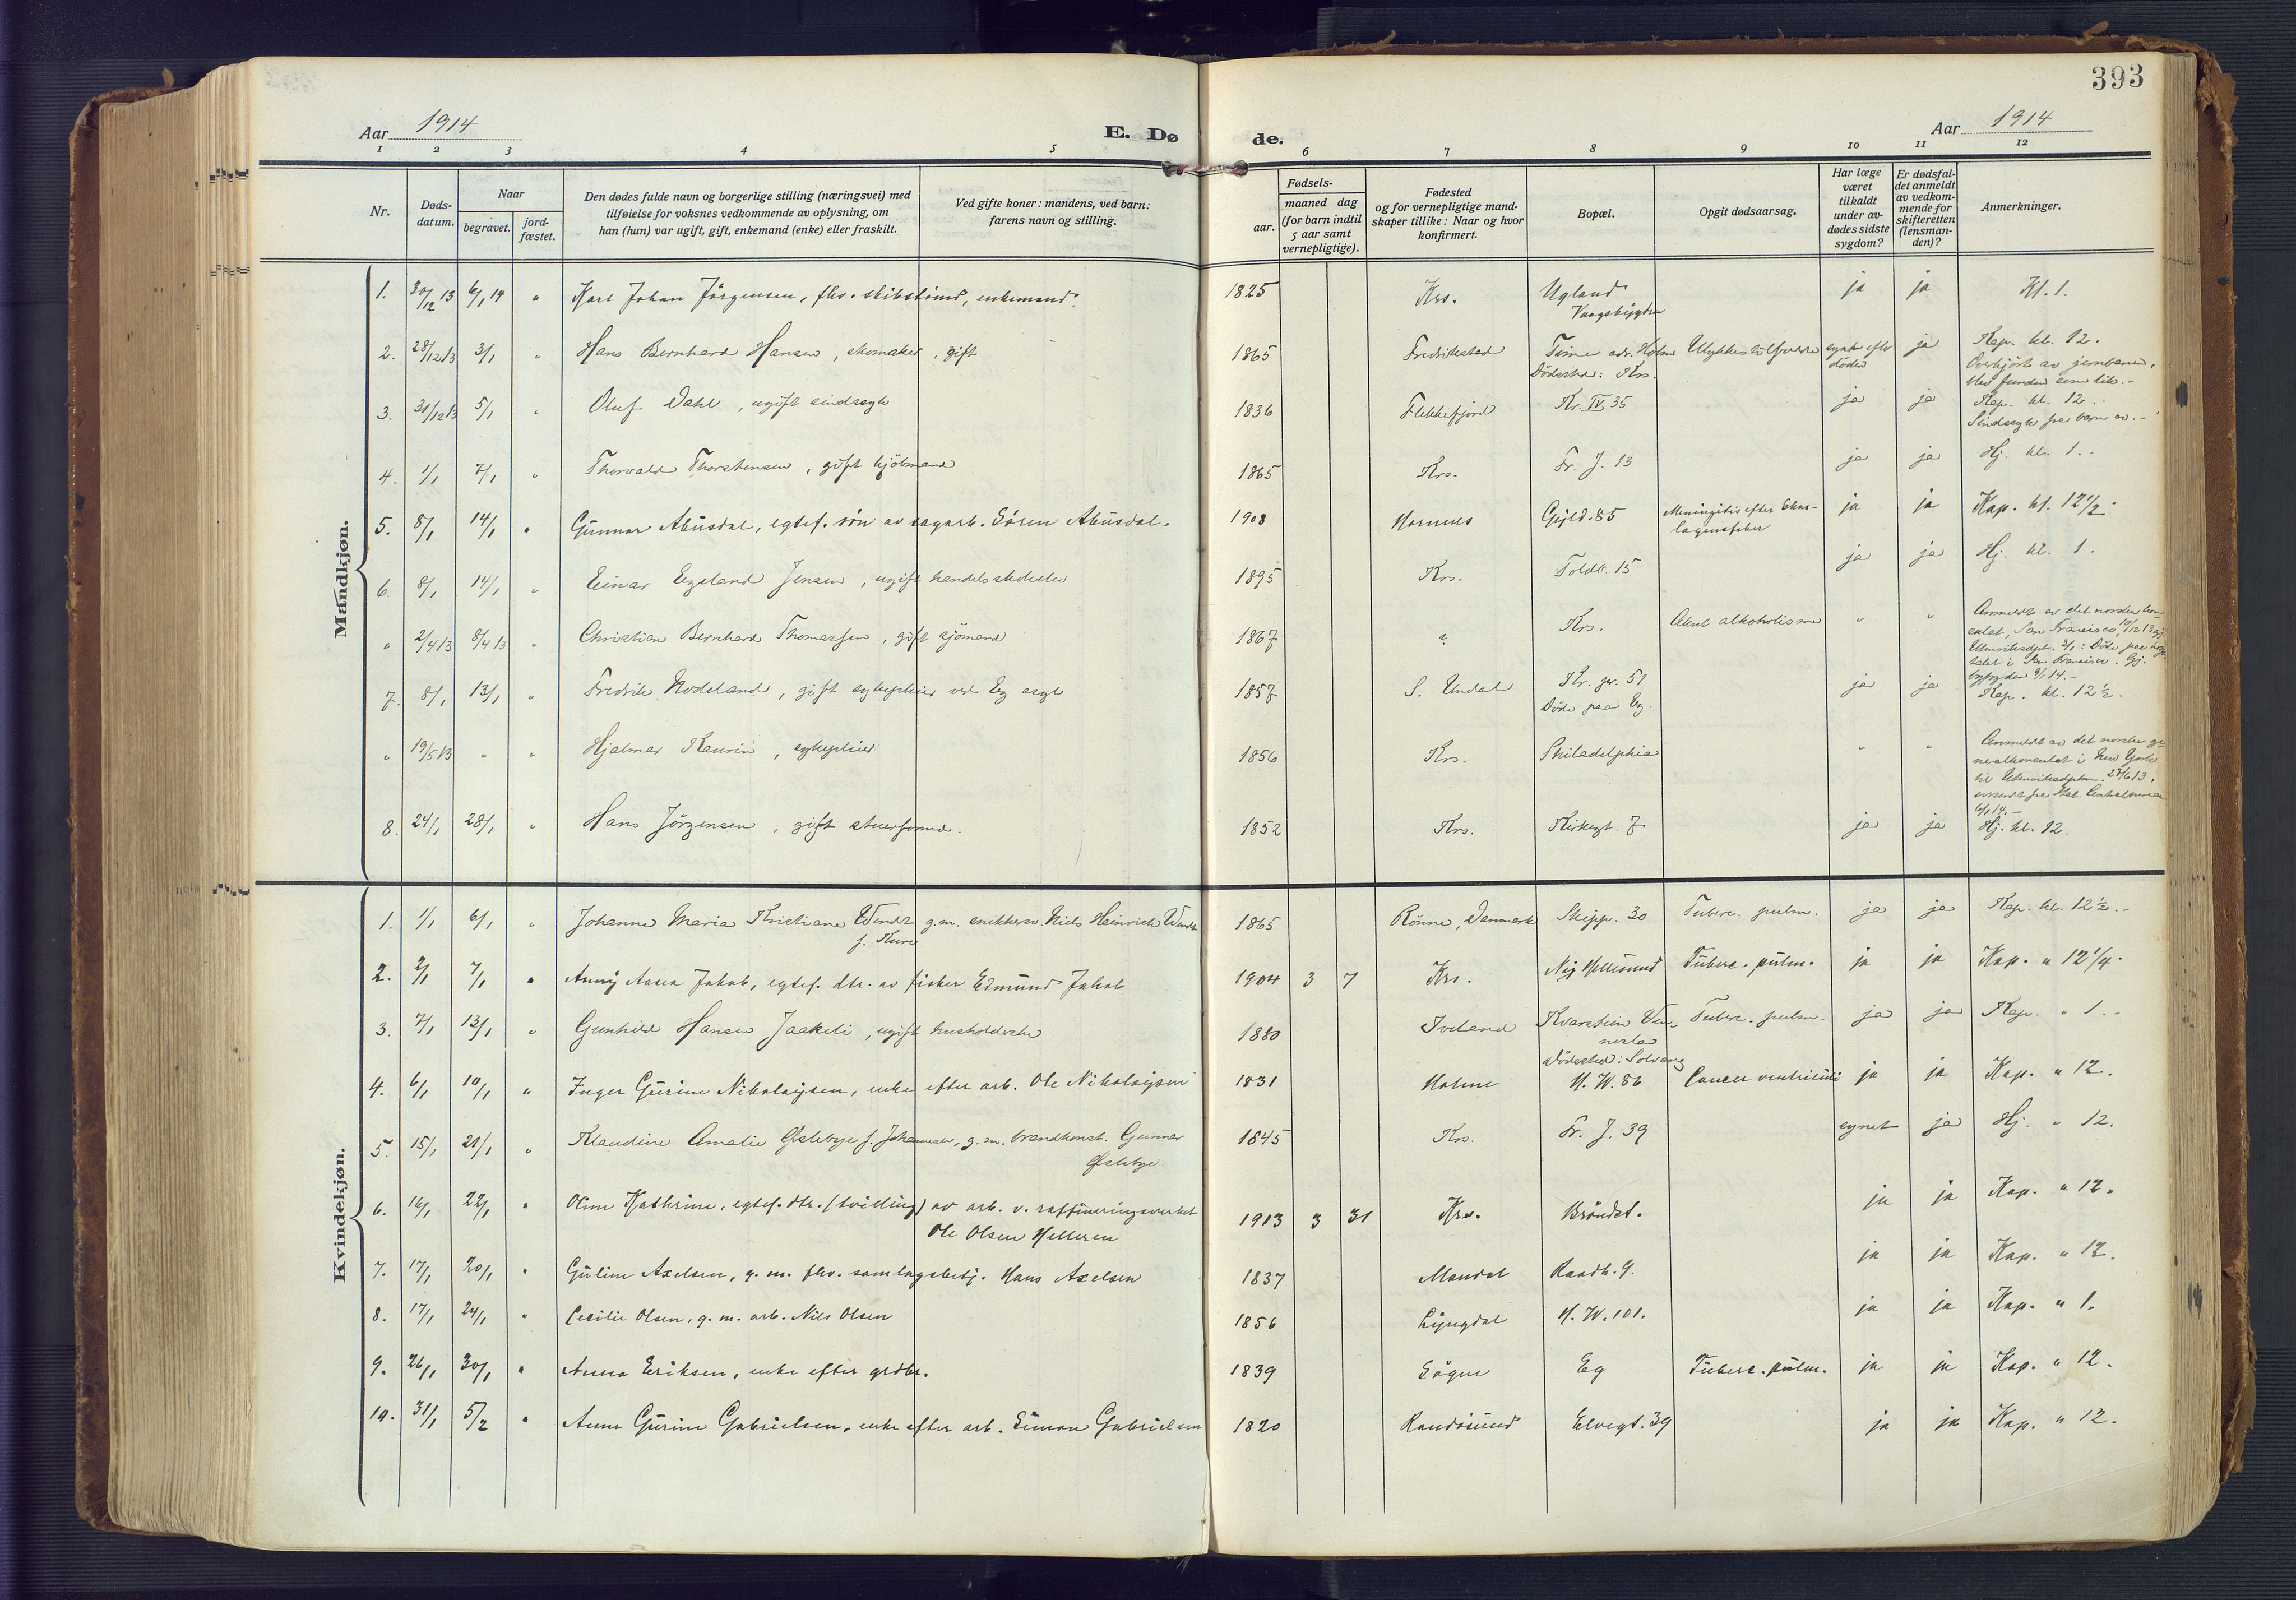 393
Aar 1914
E. Dø
de.
Aar 1914
1 2 3 4 5 6 7 8 9 10 11 12
Nr.
Døds-
datum.
Naar
begravet.
jord-
fæstet.
Den dødes fulde navn og borgerlige stilling (næringsvei) med
tilføielse for voksnes vedkommende av oplysning, om
han (hun) var ugift, gift, enkemand (enke) eller fraskilt.
Ved gifte koner: mandens, ved barn:
farens navn og stilling.
Fødsels-
aar.
maaned dag
(for barn indtil
5 aar samt
vernepligtige).
Fødested
og for vernepligtige mand-
skaper tillike: Naar og hvor
konfirmert.
Bopæl.
Opgit dødsaarsag.
Har læge
været
tilkaldt
under av-
dødes sidste
sygdom?
Er dødsfal-
det anmeldt
av vedkom-
mende for
skifteretten
(lensman-
den)?
Anmerkninger.
Mandkjøn.
1. 30/12 13 6/1 14 " Karl Johan Jörgensen, fhv. skibstömd, enkemand. 1825 Krs. Ugland ja ja Kl. 1.
Vaagsbygden
2. 28/12 13 3/1 " Hans Bernhard Hansen, skomaker, gift 1865 Fredrikstad Teine adr. Holme Ulykkestilfælde synet efter ja Kap. kl. 12.
Dödssted: Krs. döden Overkjört av jernbane,
blev funden som lik.-
3. 31/12 13 5/1 " Oluf Dahl, ugift sindssyk 1836 Flekkefjord Kr. IV 35 ja ja Kap. kl. 12.
Sindssyk fra barn av.-
4. 1/1 7/1 " Thorvald Thorstensen, gift kjöbmand 1865 Krs. Fr. J. 13 ja ja Hj. kl. 1.-
5. 8/1 14/1 " Gunnar Abusdal, egtef. sön av sagarb. Sören Abusdal. 1908 Hornnes Gyld. 85 Meningitis efter Skar- ja ja Kap. kl. 12 1/2.
lagensfeber
6. 8/1 14/1 " Einar Egeland Jensen, ugift handelsskoleelev 1895 Krs. Toldb. 15 ja ja Hj. kl. 1.
" 2/4 13 8/4 13 " Christian Bernhard Thomassen, gift sjömand 1867 " Krs. Akut alkoholisme " " Anmeldt av det norske kon-
sulat, San Francisco, 10/12 13 gj.
Utenriksdept. 3/1: Döde paa hospi-
talet i San Francisco. Gj.
byfogden 9/1 14.-
7. 8/1 13/1 " Fredrik Nodeland, gift sykepleier ved Eg asyl 1857 S. Undal Kr. gr. 51 ja ja Kap. kl. 12 1/2.
Döde paa Eg.
" 19/5 13 " " Hjalmar Kaurin, sykepleier 1856 Krs. Philadelphia " " Anmeldt av det norske ge-
neralkonsulat i New York
til Utenriksdeptm. 27/6 13.
6/1 14.-
8. 24/1 28/1 " Hans Jörgensen, gift stuerformd. 1852 Krs. Kirkegt. 7 ja ja Hj. kl. 12.
Kvindekjøn.
1. 1/1 6/1 " Johanne Maria Kristiane Wendt g.m. snikkersv. Niels Heinrich Wendt 1865 Rönne, Danmark Skipp. 30 Tuberc. pulm. ja ja Kap. kl. 12 1/2.-
f. Kure
2. 2/1 7/1 " Anny Aasea Jakob, egtef. dtr. av fisker Edmund Jakob 1904 3 7 Krs. Ny Hellesund Tuberc. pulm. ja ja Kap. " 12 1/4.
3. 7/1 13/1 " Gunhild Hansen Jaakeli, ugift husholderske 1880 Iveland Kvarstein Ven- Tuberc. pulm. ja ja Kap. " 1.-
nesla
Dödssted: Solvang
4. 6/1 10/1 " Inger Gurine Nikolaysen, enke efter arb. Ole Nikolaysen 1831 Holme H. W. 86 Cancer ventriculi ja ja Kap. " 12.
5. 15/1 21/1 " Klaudine Amalie Gslebye f. Johannesen, g.m. brandkonst. Gunnar 1845 Krs. Fr. J. 39 synet ja Hj. " 12.
6. 16/1 22/1 " Oline Kathrine, egtef. dtr. (tvilling) av arb. v. raffineringsverket 1913 3 31 Krs. Bröndst. ja ja Kap. " 12.
Ole Olsen Helleren
7. 17/1 20/1 " Guline Axelsen, g.m. fhv. samlagsbetj. Hans Axelsen 1837 Mandal Raadh. 9. ja ja Kap. " 12.
8. 17/1 24/1 " Cecilie Olsen, g.m. arb. Nils Olsen 1856 Lyngdal H. W. 101. ja ja Kap. " 1.
9. 26/1 30/1 " Anna Eriksen, enke efter grdbr. 1839 Sögne Eg Tuberc. pulm. ja ja Kap. " 12.
10. 31/1 5/2 " Anne Gurine Gabrielsen, enke efter arb. Simon Gabrielsen 1820 Randösund Elvegt. 39 ja ja Kap. " 12.